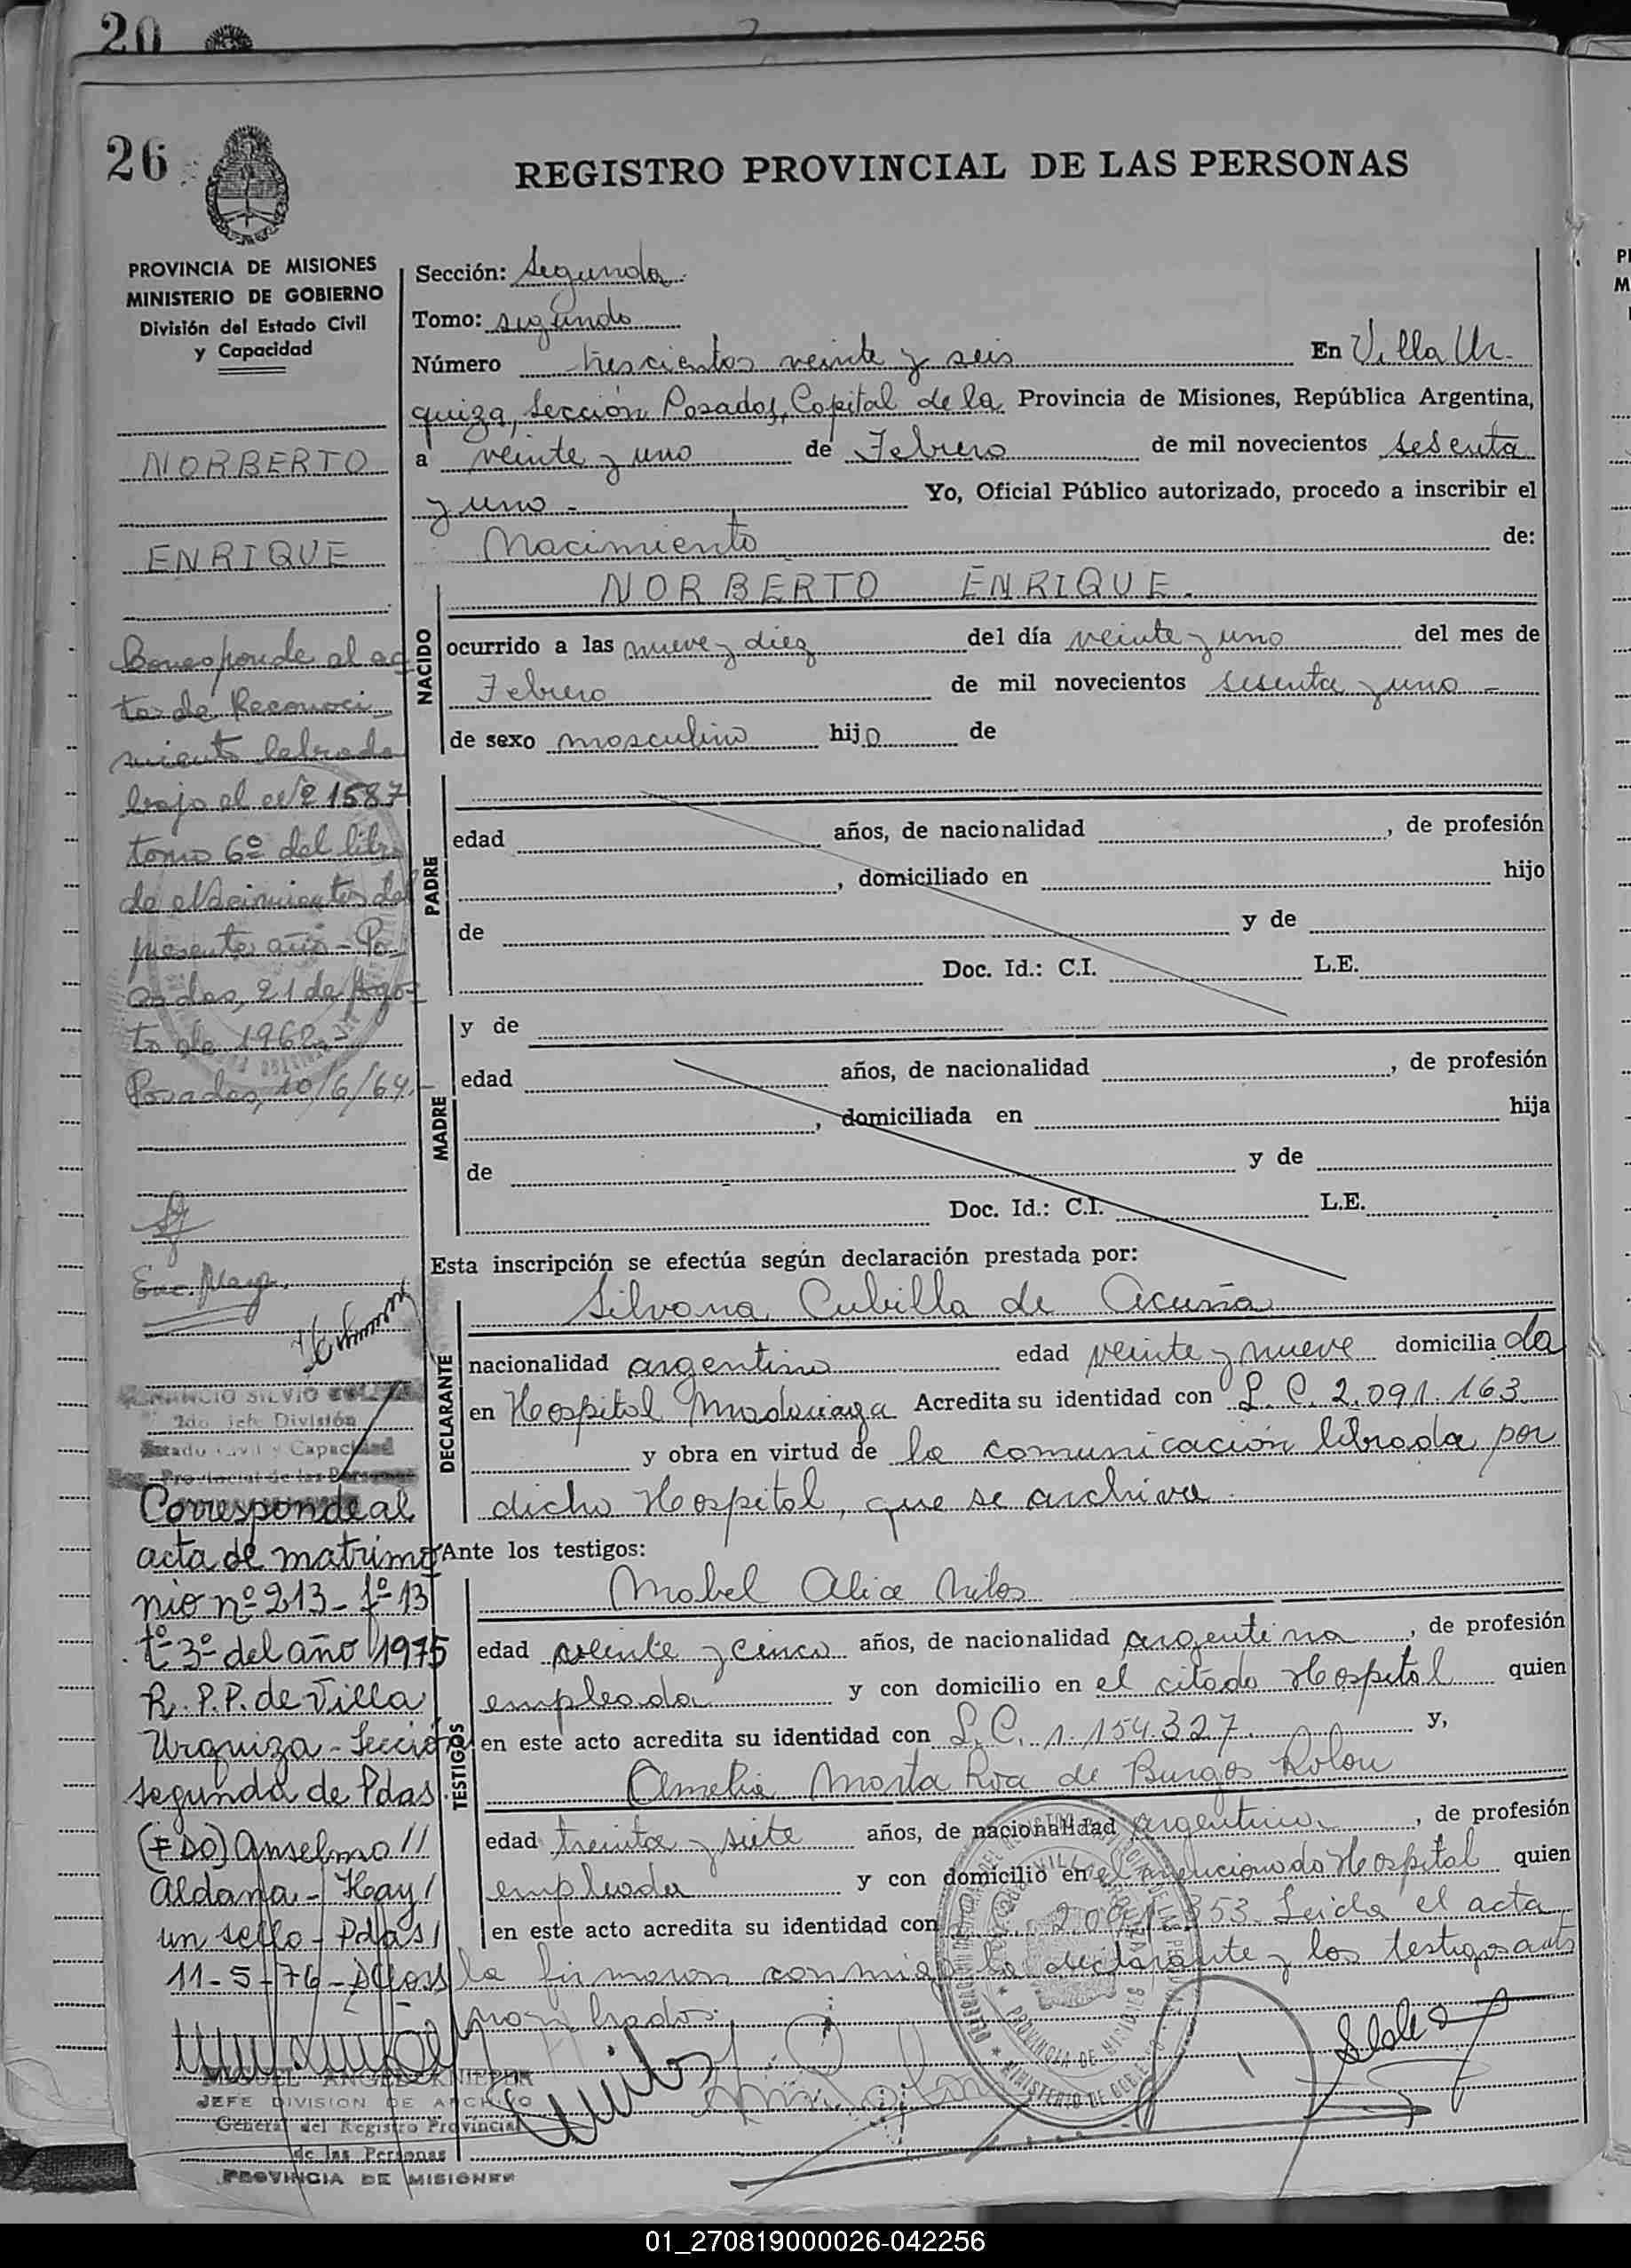 20
26
REGISTRO PROVINCIAL DE LAS PERSONAS
PROVINCIA DE MISIONES
MINISTERIO DE GOBIERNO
División del Estado Civil
y Capacidad
NORBERTO
ENRIQUE
Corresponde al ac
ta de Reconoci-
miento labrada
bajo el Nº 1587
tomo 6º del libro
de Nacimientos del
presente año - Po-
sadas, 21 de Agos-
to de 1962.-
Posadas, 10/6/64.-
Enc. Mayor.
SILVIO
2do. jefe División
Estado Civil y Capacidad
Reg. Provincial de las Personas
Corresponde al
acta de matrimo
nio nº 213 - fº 13
tº 3º del año 1975
R.P.P. de Villa
Urquiza - Secció
segunda de Pdas.
(FDO) Anselmo //
Aldana - Hay /
un sello - Pdas /
11-5-76 -
MIGUEL ANGEL
JEFE DIVISION DE ARCHIVO
General del Registro Provincial
de las Personas
PROVINCIA DE MISIONES
Sección: Segunda
Tomo: segundo
Número trescientos veinte y seis En Villa Ur-
quiza, Sección Posadas, Capital de la Provincia de Misiones, República Argentina,
a veinte y uno de Febrero de mil novecientos sesenta
y uno - Yo, Oficial Público autorizado, procedo a inscribir el
Nacimiento de:
NACIDO
NORBERTO ENRIQUE.
ocurrido a las nueve y diez del día veinte y uno del mes de
Febrero de mil novecientos sesenta y uno -
de sexo masculino hijo de
PADRE
edad años, de nacionalidad , de profesión
, domiciliado en hijo
de y de
Doc. Id.: C.I. L.E.
MADRE
y de
edad años, de nacionalidad , de profesión
, domiciliada en hija
de y de
Doc. Id.: C.I. L.E.
Esta inscripción se efectúa según declaración prestada por:
DECLARANTE
Silvana Cubilla de Acuña
nacionalidad argentina edad veinte y nueve domicilia da
en Hospital Madariaga Acredita su identidad con L.C. 2.091.163
y obra en virtud de la comunicación librada por
dicho Hospital, que se archiva.
Ante los testigos:
TESTIGOS
Mabel Alice
edad veinte y cinco años, de nacionalidad argentina , de profesión
empleada y con domicilio en el citado Hospital quien
en este acto acredita su identidad con L.C. 1.154.327 y,
Amelia Marta Roa de Burgos Rolon
edad treinta y siete años, de nacionalidad argentina , de profesión
empleada y con domicilio en el mencionado Hospital quien
en este acto acredita su identidad con 353. Leída el acta
la firmaron conmigo la declarante y los testigos ante
nombrados.
MINISTERIO DE GOBIERNO
PROVINCIA DE MISIONES
01_270819000026-042256